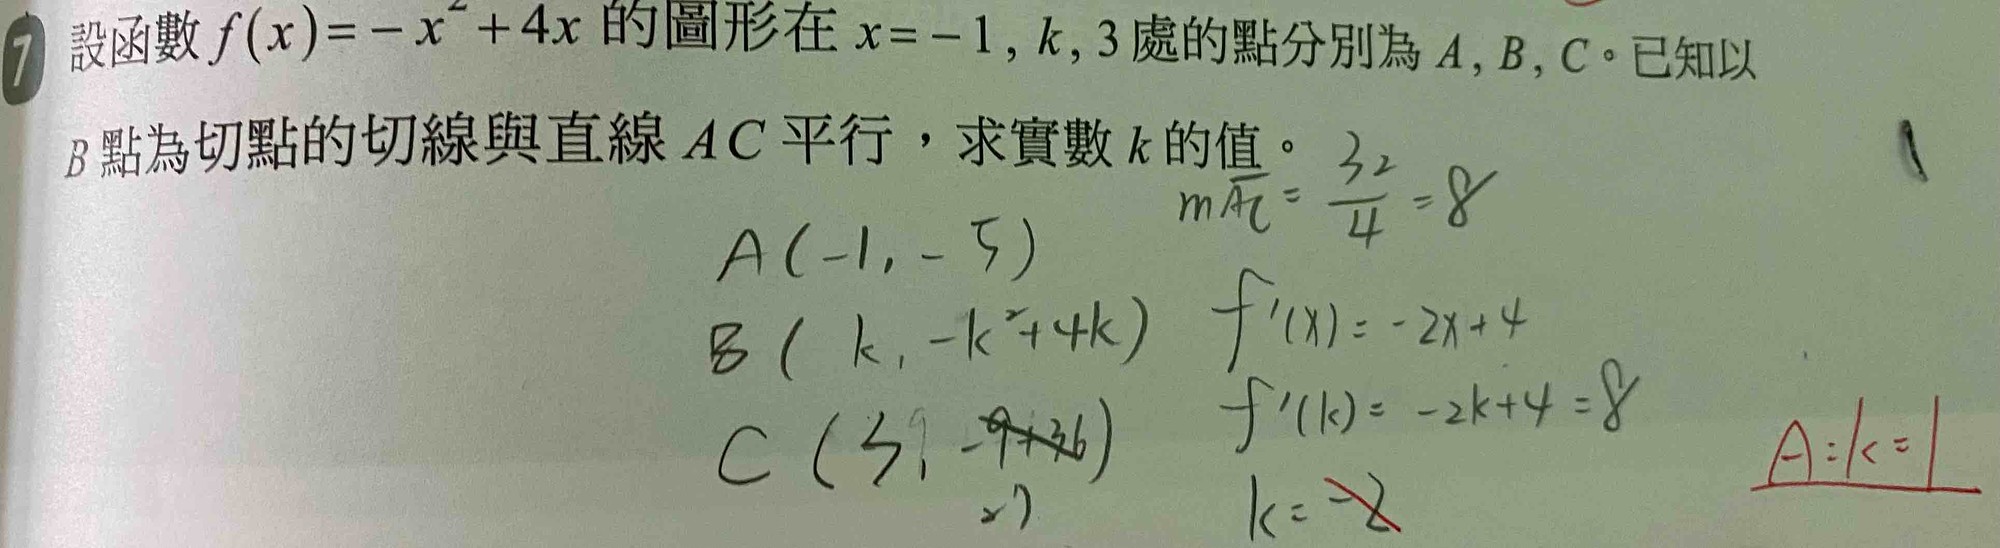 7 設函數 f(x)=-x²+4x 的圖形在 x=-1, k, 3 處的點分別為 A, B, C。已知以
B 點為切點的切線與直線 AC 平行，求實數 k 的值。
mAC = 32/4 = 8
A(-1, -5)
B(k, -k²+4k)
f'(x) = -2x+4
C(3, -9+36)
27
f'(k) = -2k+4 = 8
k = -2
A:k=1
1